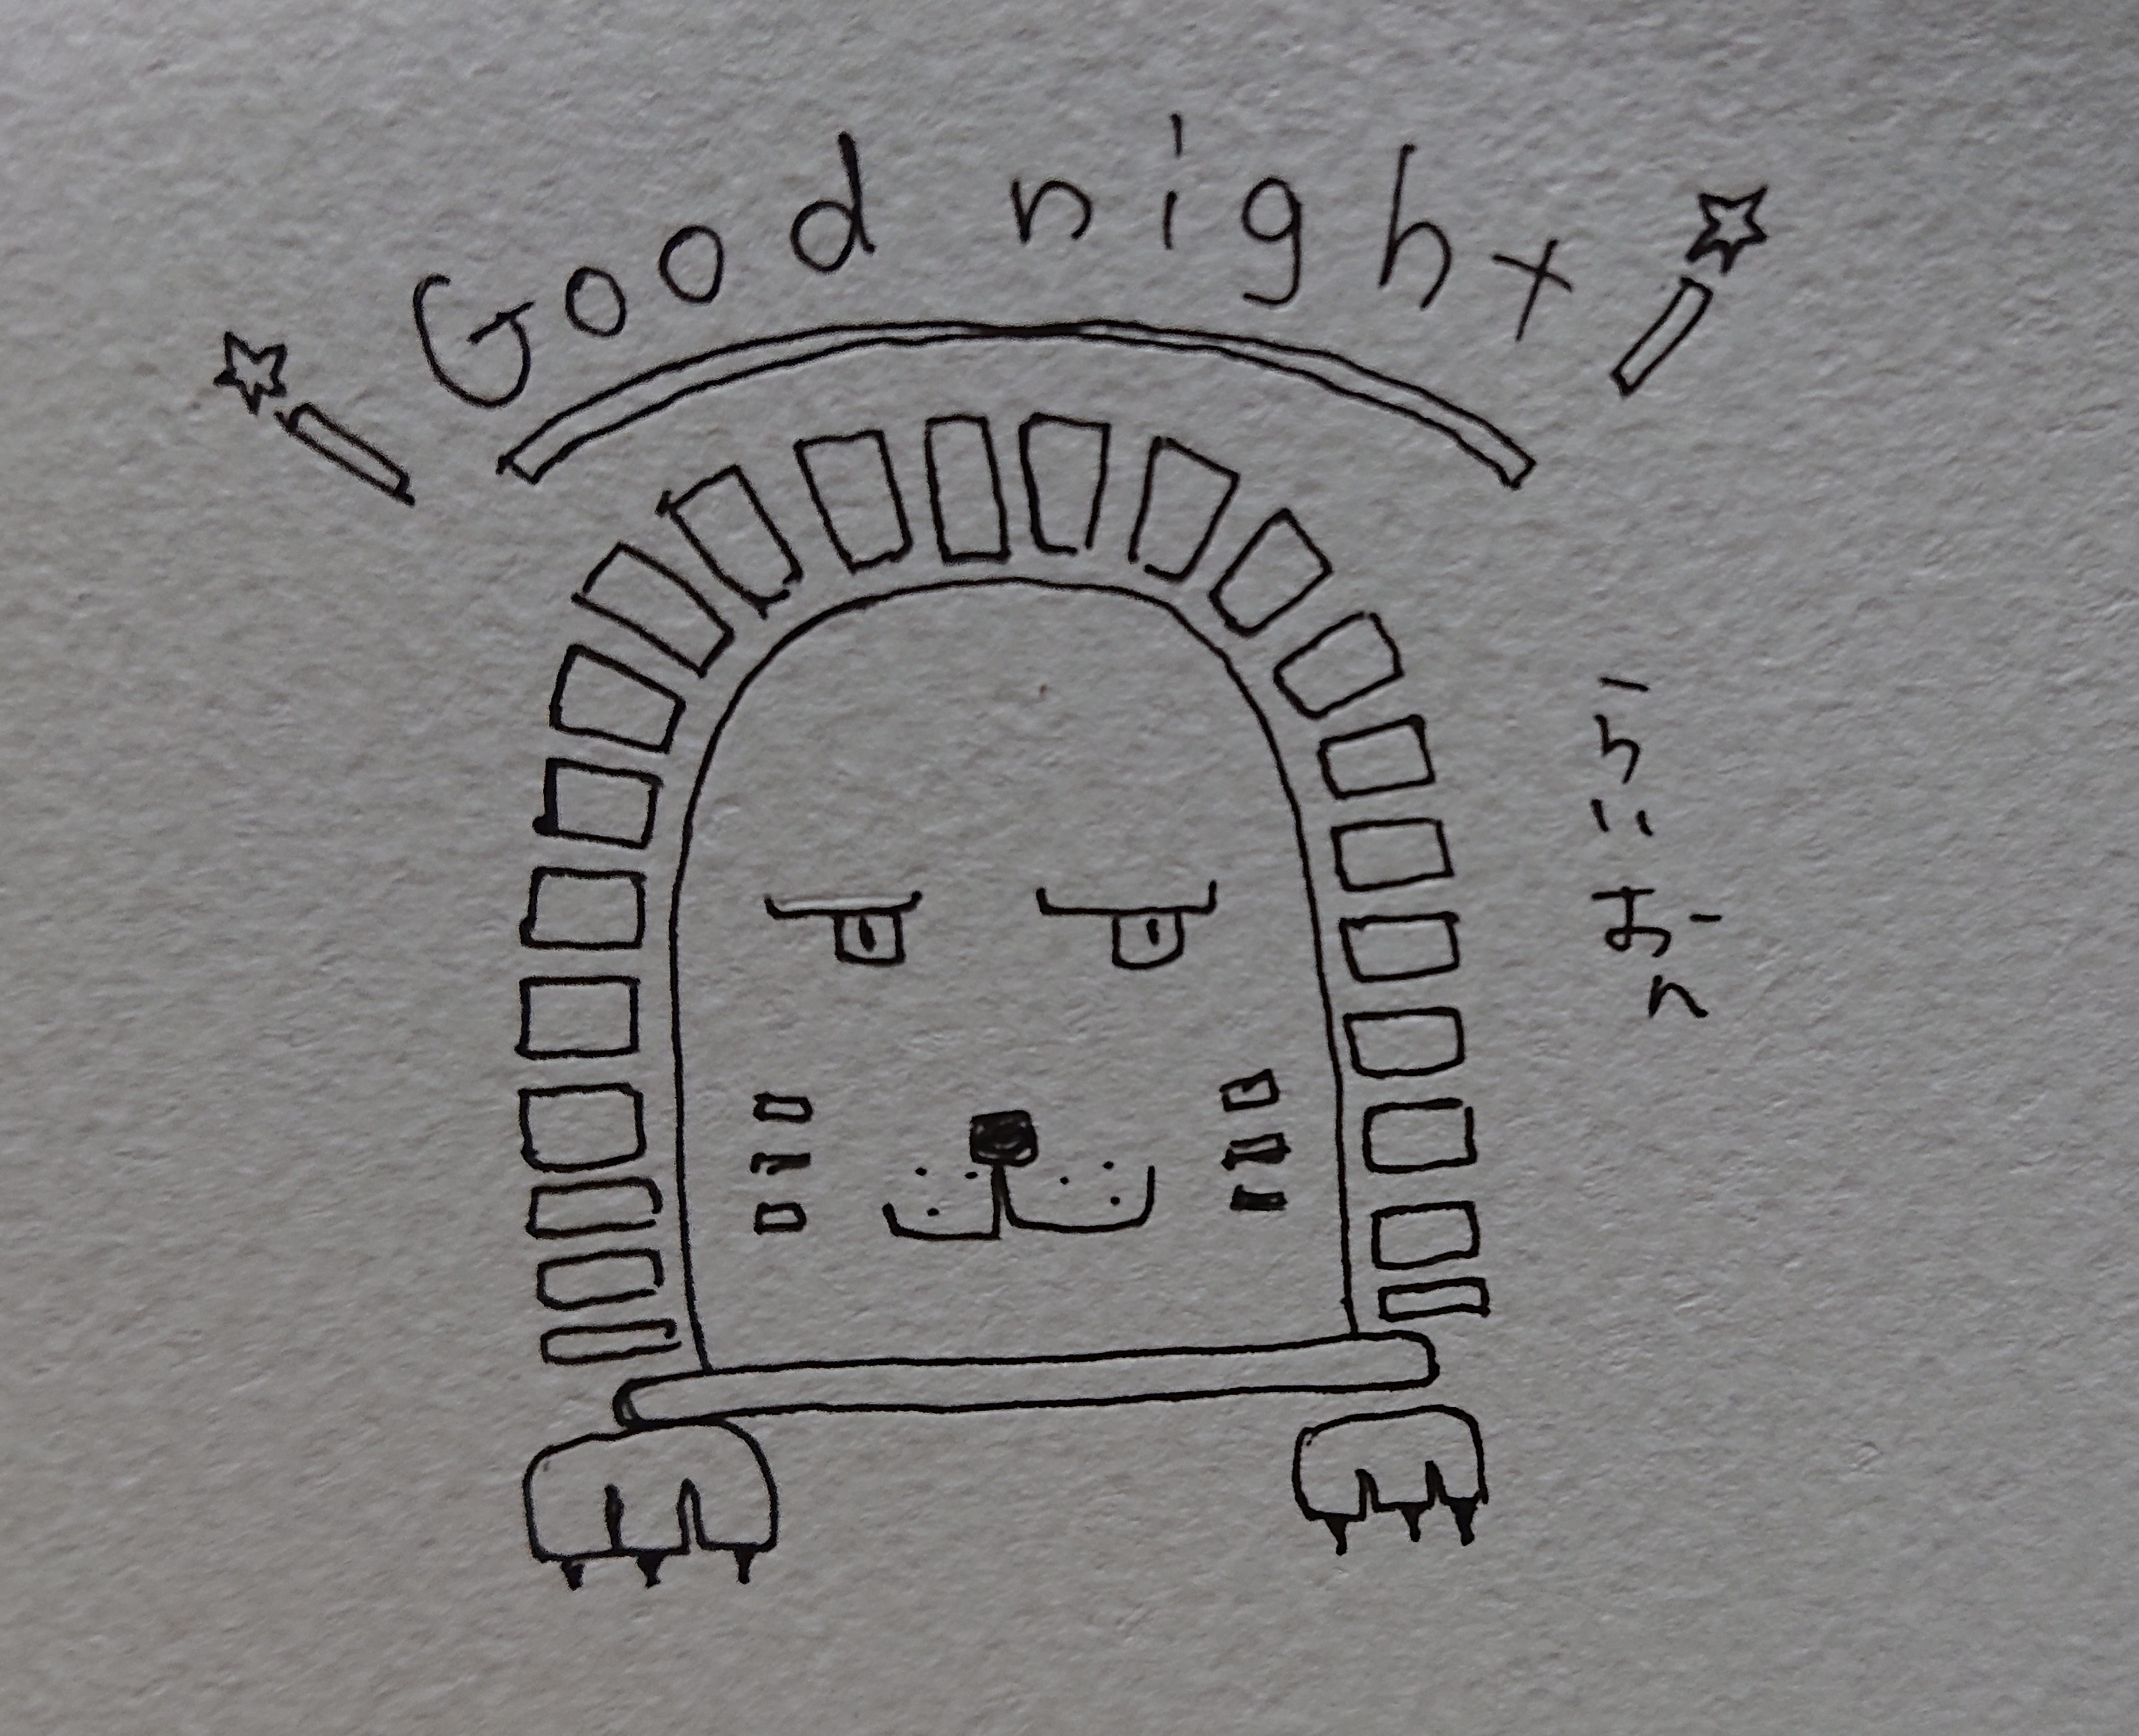 Good night
らいおん